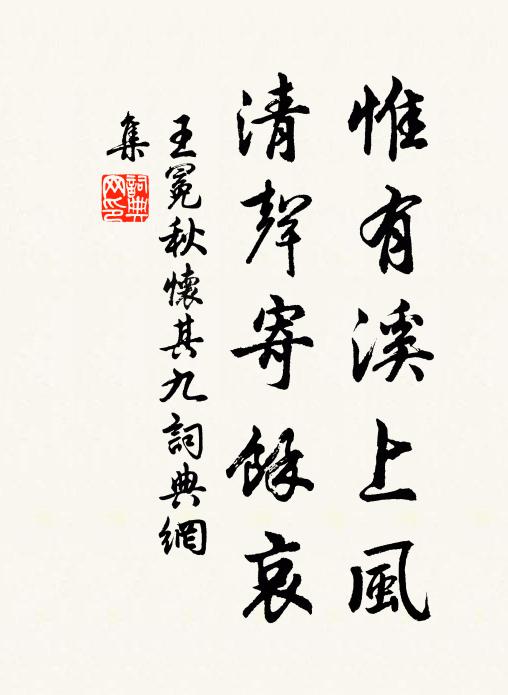 惟有溪上風
清聲寄餘哀
王冕秋懷其九詞典網
集
詞典
网印